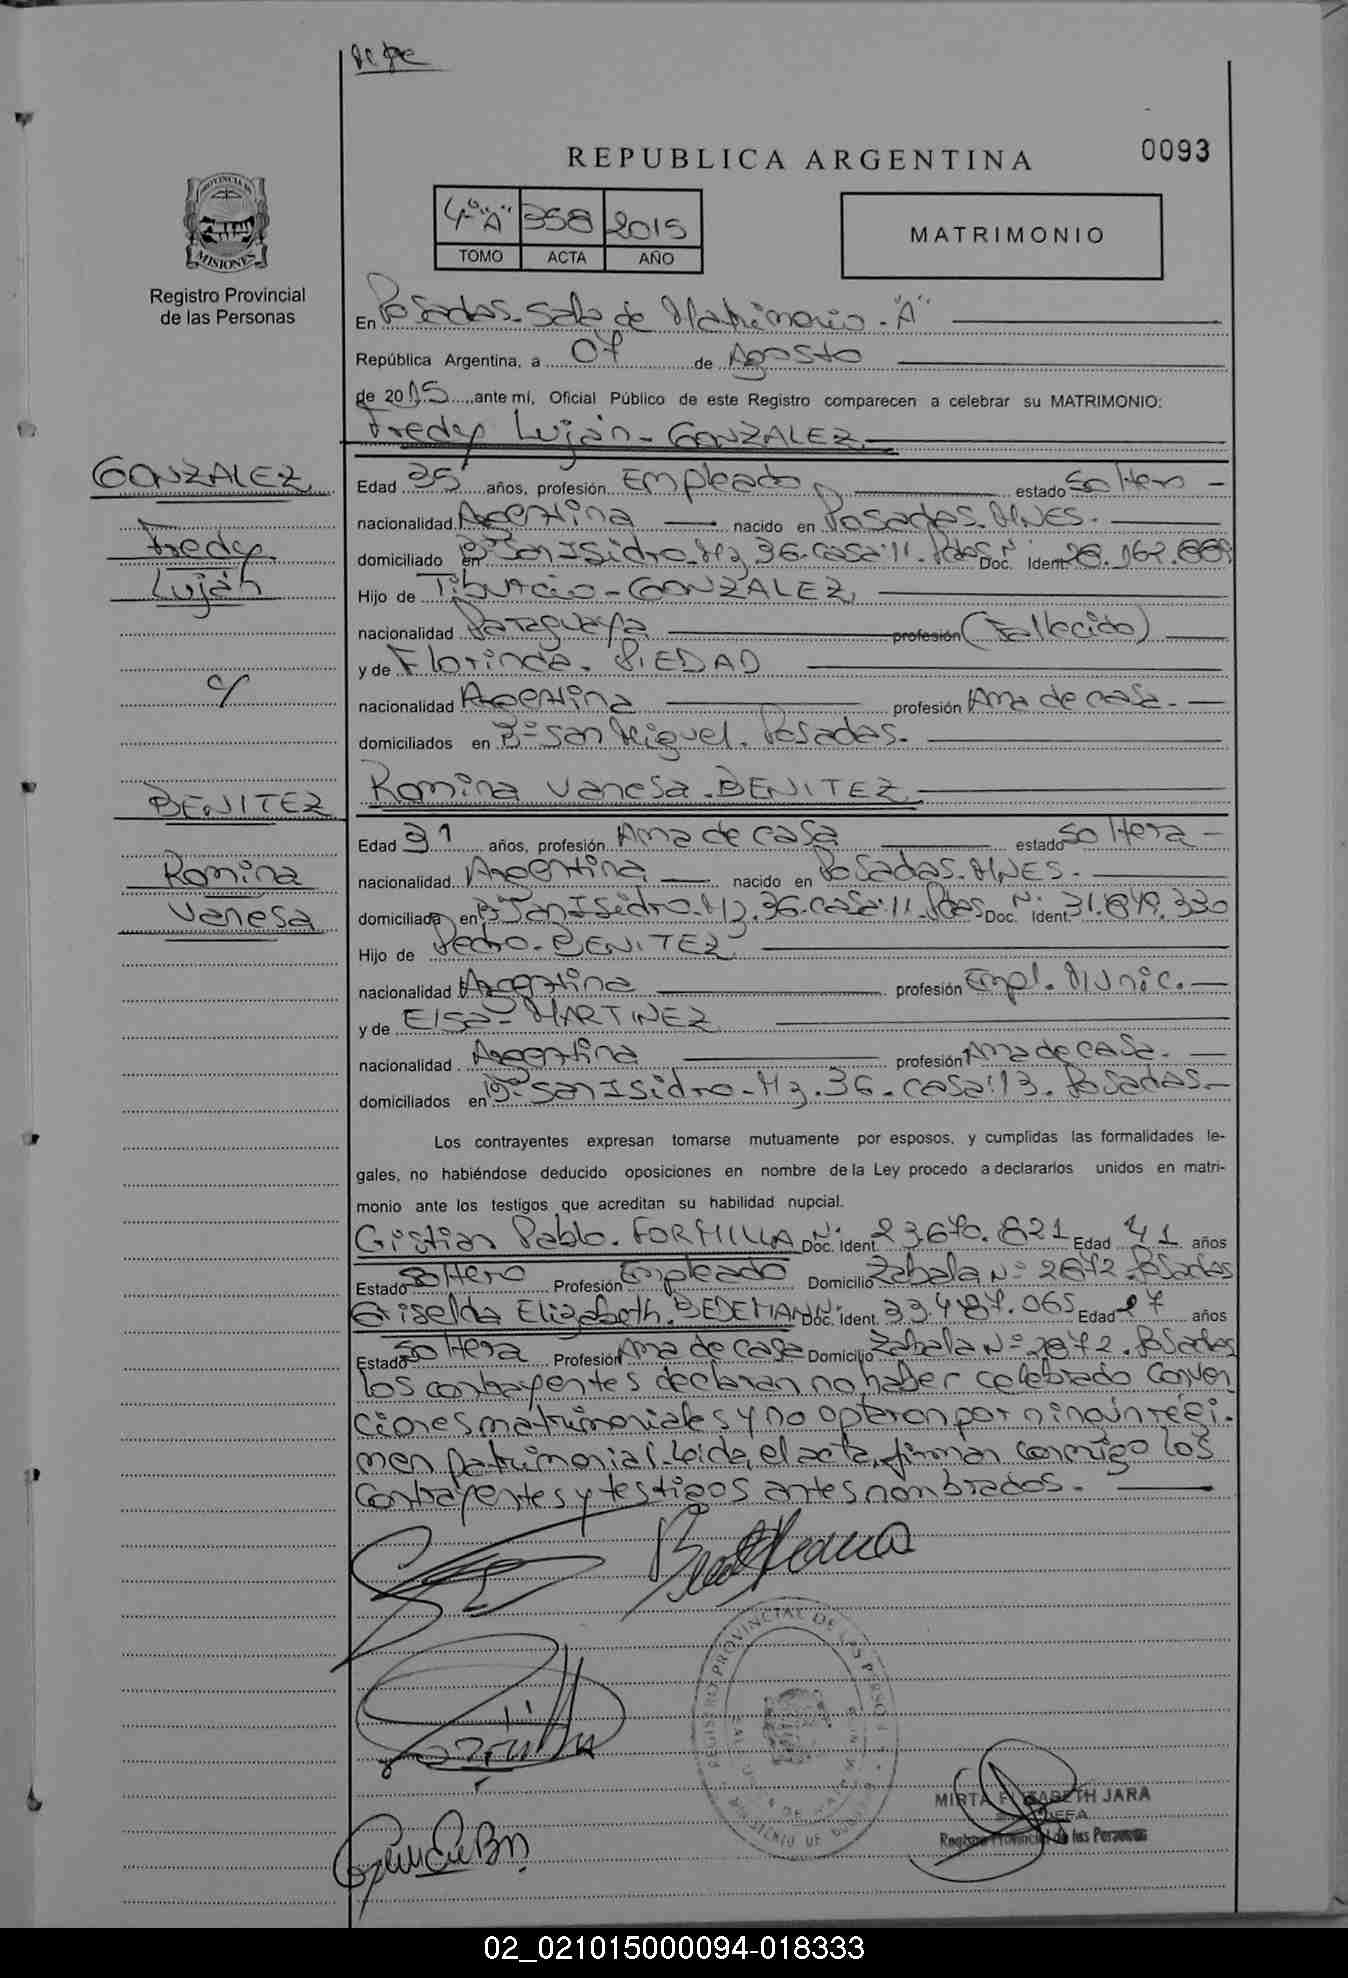 REPUBLICA ARGENTINA
0093
4º "A" 358 2015
TOMO ACTA AÑO
MATRIMONIO
PROVINCIA DE
MISIONES
Registro Provincial
de las Personas
En Posadas. Sala de Matrimonio. "A"
República Argentina, a 07 de Agosto
de 2015, ante mí, Oficial Público de este Registro comparecen a celebrar su MATRIMONIO:
Fredy Luján - GONZALEZ
GONZALEZ
Fredy
Luján
c/
BENITEZ
Romina
Vanesa
Edad 35 años, profesión Empleado estado Soltero -
nacionalidad Argentina nacido en Posadas. MNES.
domiciliado en Bº San Isidro - Mz. 36. casa: 11. Pdas Doc. Nº Ident.
Hijo de Tiburcio - GONZALEZ,
nacionalidad Paraguaya profesión (Fallecido)
y de Florinda. PIEDAD
nacionalidad Argentina profesión Ama de casa. -
domiciliados en Bº San Miguel. Posadas. -
Romina Vanesa. BENITEZ
Edad 31 años, profesión Ama de casa estado Soltera -
nacionalidad Argentina nacido en Posadas. MNES.
domiciliado en Bº San Isidro - Mz. 36. casa: 11. Pdas Doc. Nº Ident. 31.849.330
Hijo de Pedro - BENITEZ
nacionalidad Argentina profesión Empl. Munic. -
y de Elsa - MARTINEZ
nacionalidad Argentina profesión Ama de casa. -
domiciliados en Bº San Isidro - Mz. 36. casa: 13. Posadas. -
Los contrayentes expresan tomarse mutuamente por esposos, y cumplidas las formalidades le-
gales, no habiéndose deducido oposiciones en nombre de la Ley procedo a declararlos unidos en matri-
monio ante los testigos que acreditan su habilidad nupcial.
Cristian Pablo. FORMILLA Doc. Nº Ident. 23.670.821 Edad 41 años
Estado Soltero Profesión Empleado Domicilio Zabala Nº 2872. Posadas
Griselda Elizabeth. BEDEMANN Doc. Nº Ident. 33.487.065 Edad 27 años
Estado Soltera Profesión Ama de casa Domicilio Zabala Nº 2872. Posadas
los contrayentes declaran no haber celebrado Conven
ciones matrimoniales y no optaron por ningún régi-
men patrimonial. Leída, el acta, firman conmigo los
Contrayentes y testigos antes nombrados. -
REGISTRO PROVINCIAL DE LAS PERSONAS
MIRTA ELIZABETH JARA
JEFA
Registro Provincial de las Personas
02_021015000094-018333